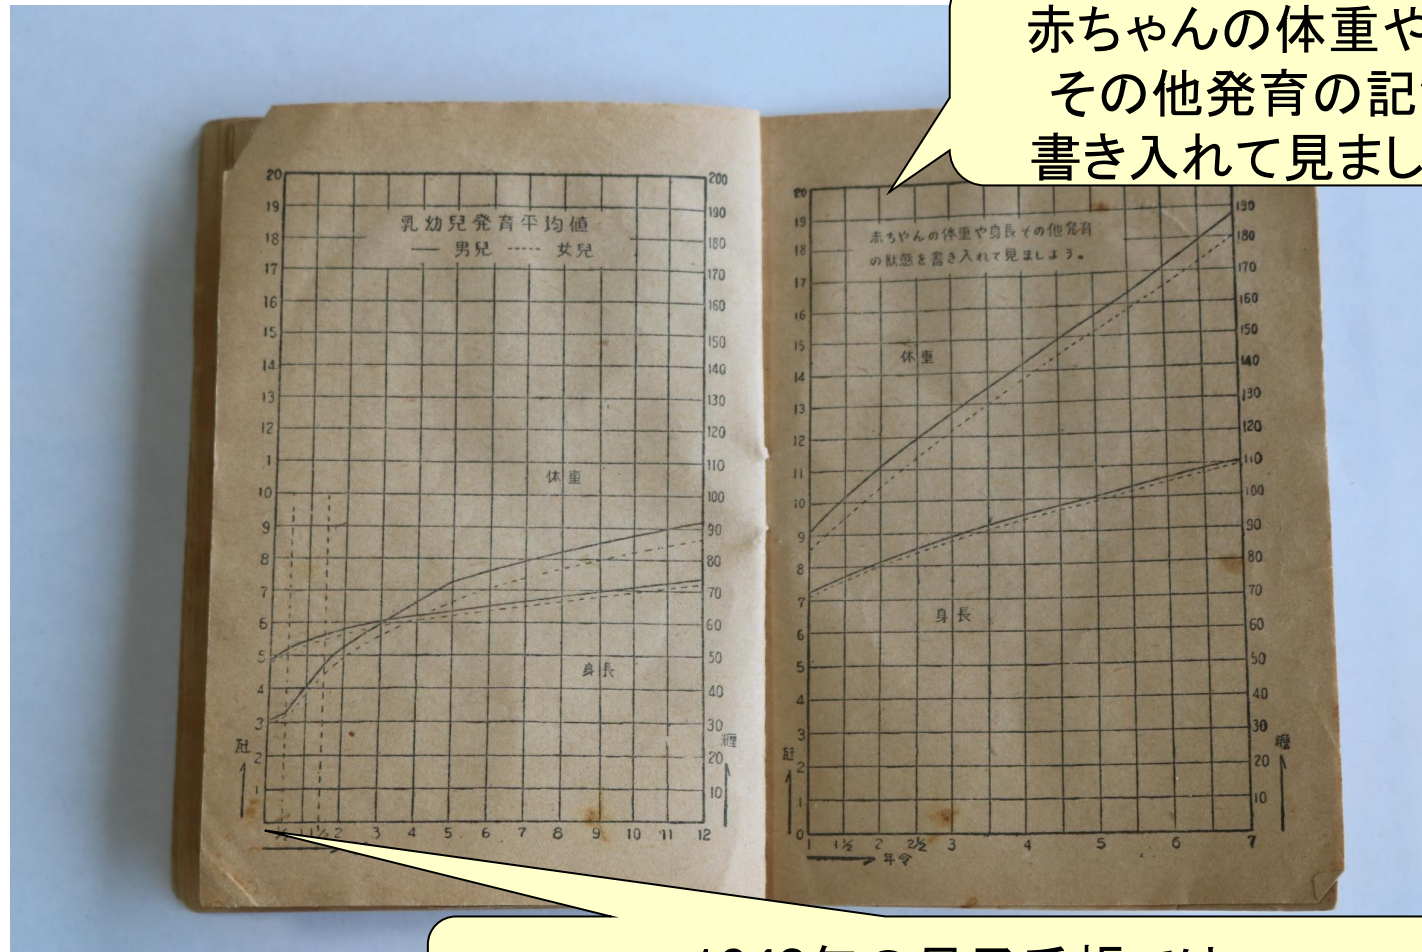 赤ちゃんの体重や
その他発育の記
書き入れて見まし
乳幼兒発育平均値
— 男兒 ---- 女兒
20
19
18
17
16
15
14
13
12
1
10
9
8
7
6
5
4
3
2
1
200
190
180
170
160
150
140
130
120
110
100
90
80
70
60
50
40
30
20
10
体重
身長
瓩
糎
½ 1 1½ 2 3 4 5 6 7 8 9 10 11 12
赤ちやんの体重や身長その他発育
の狀態を書き入れて見ましよう。
20
19
18
17
16
15
14
13
12
11
10
9
8
7
6
5
4
3
2
1
0
190
180
170
160
150
140
130
120
110
100
90
80
70
60
50
40
30
20
10
体重
身長
瓩
糎
1 1½ 2 2½ 3 4 5 6 7
年令